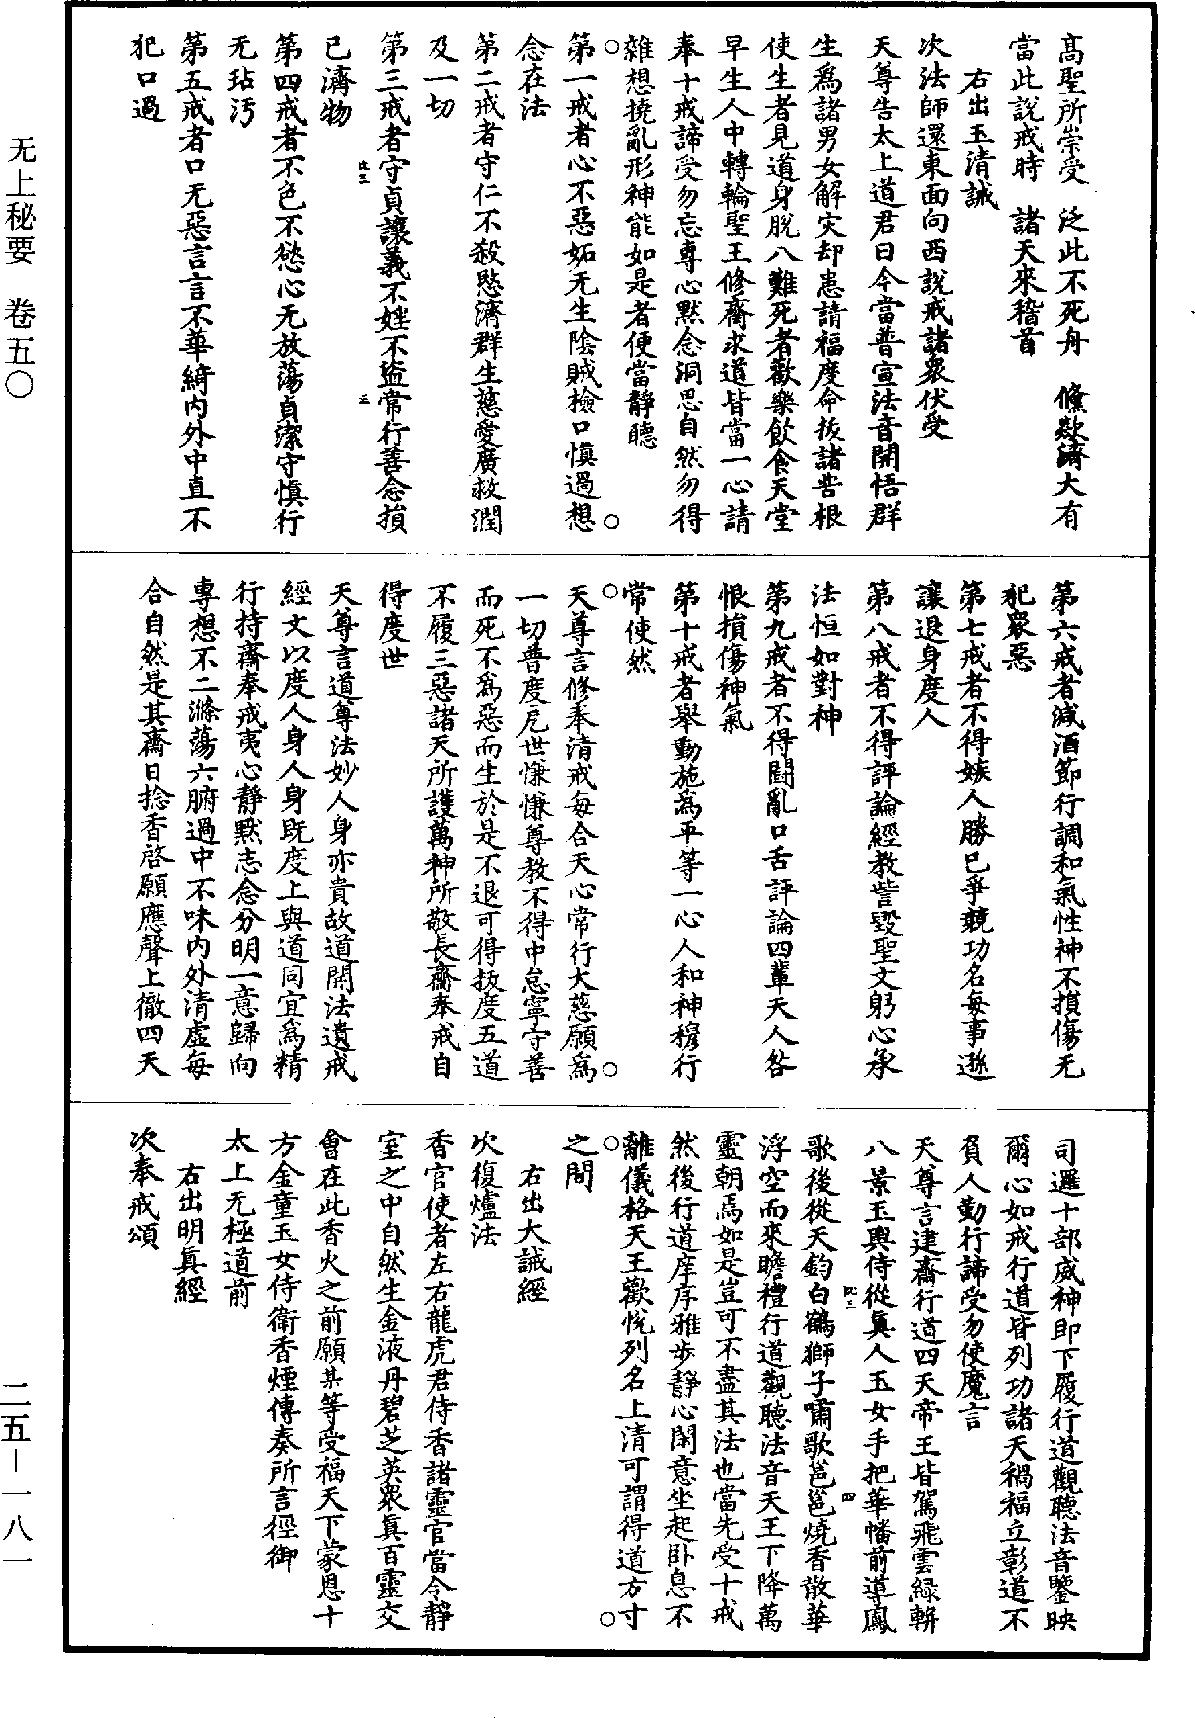 高聖所崇受　泛此不死舟　儵歘濟大有
當此說戒時　諸天來稽首
右出玉清誡
次法師還東面向西說戒諸衆伏受
天尊告太上道君曰今當普宣法音開悟群
生爲諸男女解灾却患請福度命拔諸苦根
使生者見道身脫八難死者歡樂飲食天堂
早生人中轉輪聖王修齋求道皆當一心請
奉十戒諦受勿忘專心默念洞思自然勿得
雜想撓亂形神能如是者便當靜聽
第一戒者心不惡妬无生陰賊檢口慎過想
念在法
第二戒者守仁不殺愍濟群生慈愛廣救潤
及一切
第三戒者守貞讓義不婬不盜常行善念損
已濟物
第四戒者不色不慾心无放蕩貞潔守慎行
无玷污
第五戒者口无惡言言不華綺內外中直不
犯口過
第六戒者減酒節行調和氣性神不損傷无
犯衆惡
第七戒者不得嫉人勝已爭競功名每事遜
讓退身度人
第八戒者不得評論經教訾毀聖文躬心承
法恒如對神
第九戒者不得鬪亂口舌評論四輩天人咎
恨損傷神氣
第十戒者舉動施爲平等一心人和神穆行
常使然
天尊言修奉清戒每合天心常行大慈願爲
一切普度厄世慊慊尊教不得中怠寧守善
而死不爲惡而生於是不退可得拔度五道
不履三惡諸天所護萬神所敬長齋奉戒自
得度世
天尊言道尊法妙人身亦貴故道開法遺戒
經文以度人身人身既度上與道同宜爲精
行持齋奉戒夷心靜默志念分明一意歸向
專想不二滌蕩六腑過中不味內外清虛每
合自然是其齋日捻香啓願應聲上徹四天
司邏十部威神即下履行道觀聽法音鑒映
爾心如戒行道皆列功諸天禍福立彰道不
負人勤行諦受勿使魔言
天尊言建齋行道四天帝王皆駕飛雲緑軿
八景玉輿侍從眞人玉女手把華幡前導鳳
歌後從天鈞白鶴獅子嘯歌邕邕燒香散華
浮空而來瞻禮行道觀聽法音天王下降萬
靈朝焉如是豈可不盡其法也當先受十戒
然後行道庠序雅步靜心閑意坐起卧息不
離儀格天王歡悅列名上清可謂得道方寸
之間
右出大誡經
次復爐法
香官使者左右龍虎君侍香諸靈官當令靜
室之中自然生金液丹碧芝英衆眞百靈交
會在此香火之前願某等受福天下蒙恩十
方金童玉女侍衛香煙傳奏所言徑御
太上无極道前
右出明眞經
次奉戒頌
无上秘要　卷五〇
二五—一八一